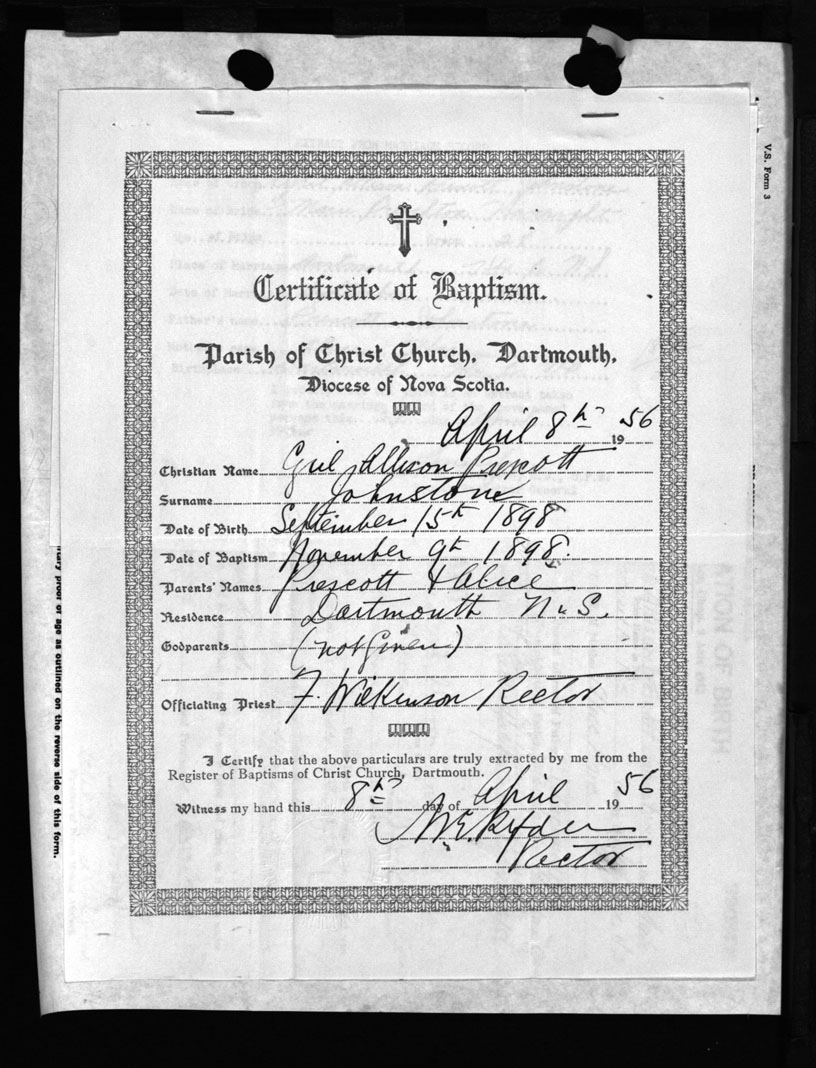 V.S. Form 3
Certificate of Baptism.
Parish of Christ Church, Dartmouth,
Diocese of Nova Scotia.
April 8th 1956
Christian Name Allison Prescott
Surname Johnstone
Date of Birth September 15th 1898
Date of Baptism November 9th 1898.
Parents' Names Prescott & Alice
Residence Dartmouth N.S.
Godparents (not Given)
Officiating Priest F. Wilkinson Rector
I Certify that the above particulars are truly extracted by me from the
Register of Baptisms of Christ Church, Dartmouth.
Witness my hand this 8th day of April 1956
Ryder
Rector
proof of age as outlined on the reverse side of this form.